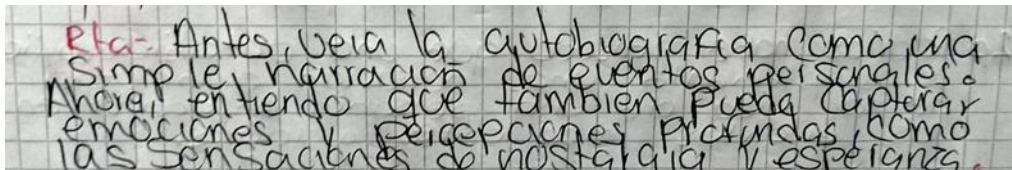 Rta- Antes, veia la autobiografia como una
simple narracion de eventos personales.
Ahora, entiendo que tambien pueda capturar
emociones y percepciones profundas, como
las sensaciones de nostalgia y esperanza.